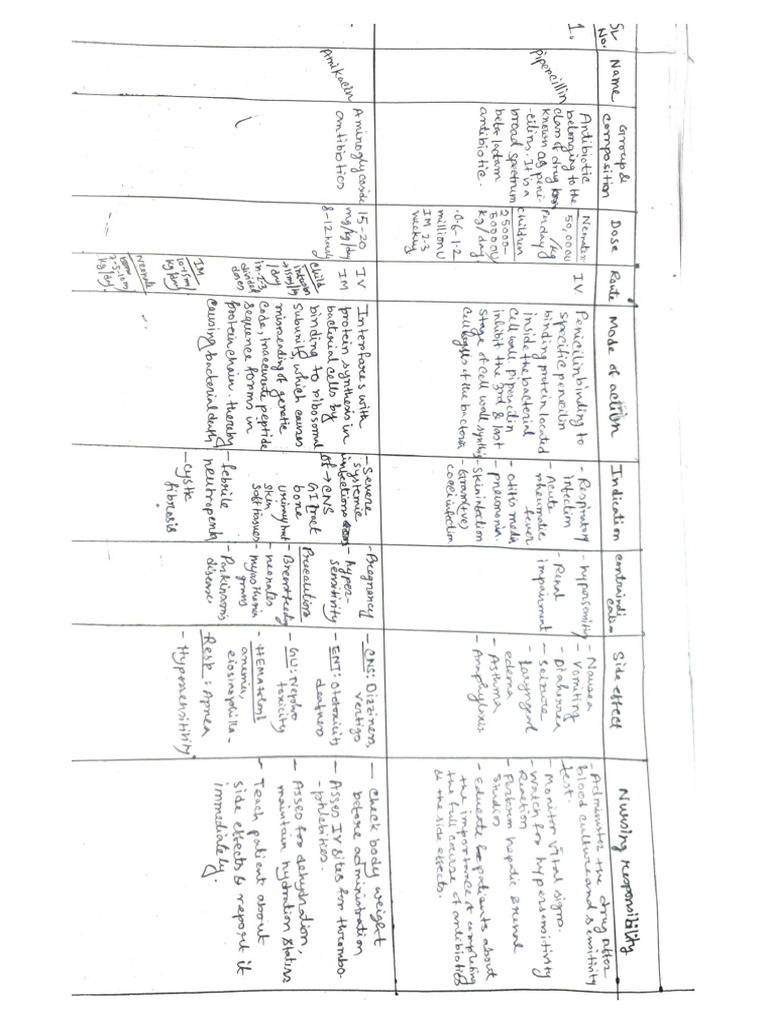 Sr No.
Name
Group & composition
Dose
Route
Mode of action
Indication
contraindi cation
Side effect
Nursing responsibility
1.
Pipencillin
Antibiotic
belonging to the
class of drug
known as peni-
cillins. It is a
broad spectrum
beta lactam
antibiotic.
50,000u
/kg
per day
children
25000-
50000u
kg/day
0.6-1.2
million u
IM 2-3
weekly
IV
Penicillin binding to
specific penicilin
binding protein located
inside the bacterial
cell wall. Pipencilin
inhibit the 3rd & last
stage of cell wall synthesis
- Respiratory
infection
- Acute
rheumatic
fever
- otitis media
- pneumonia.
- Skin infection
- Gram (+ve)
cocci infection
- hypersensitivity
- Renal
impairment
- Nausea
- vomiting
- Diahrrea
- seizure
- laryngeal
edema
- Asthma
- Anaphylaxis
- Administer the drug after
blood culture and sensitivity
test.
- Monitor vital signs.
- Watch for hypersensitivity
Reaction
- Perform hepatic & renal
studies
- Educate patients about
the importance of completing
the full course of antibiotics
& the side effects.
Amikacin
Aminoglycoside
antibiotics
15-20
mg/kg/day
8-12 hourly
IV
IM
Child
infusion
/day
in 2-3
divided
doses
IM
10-15mg
kg/day
Neonate
kg/day.
Interfares with
protein synthesis in
bacterial cells by
binding to ribosomal
subunit, which causes
misreading of genetic
code, Inaccurate peptide
sequence forms in
protein chain. thereby
causing bacterial death
- Severe
systemic
infections
of → CNS
GI tract
bone
urinary tract
skin
soft tissues
- febrile
neutropenia
- cystic
fibrosis
- Pregnancy
- hyper-
sensitivity
Precautions
- Breastfeeding
- neonates
- myasthenia
gravis
- Parkinsons
disease.
- CNS: Dizziness,
vertigo
- ENT: Ototoxicity
deafness
- GU: Nephro
toxicity
- HEMatologI
anemia,
eiosinophilla-
Resp: Apnea
- Hypersensitivity
- check body weight
before administration
- Asses IV sites for thrombo
-phlebities.
- Asses for dehydration,
maintain hydration status
- Teach patient about
side effects & report it
immediately.